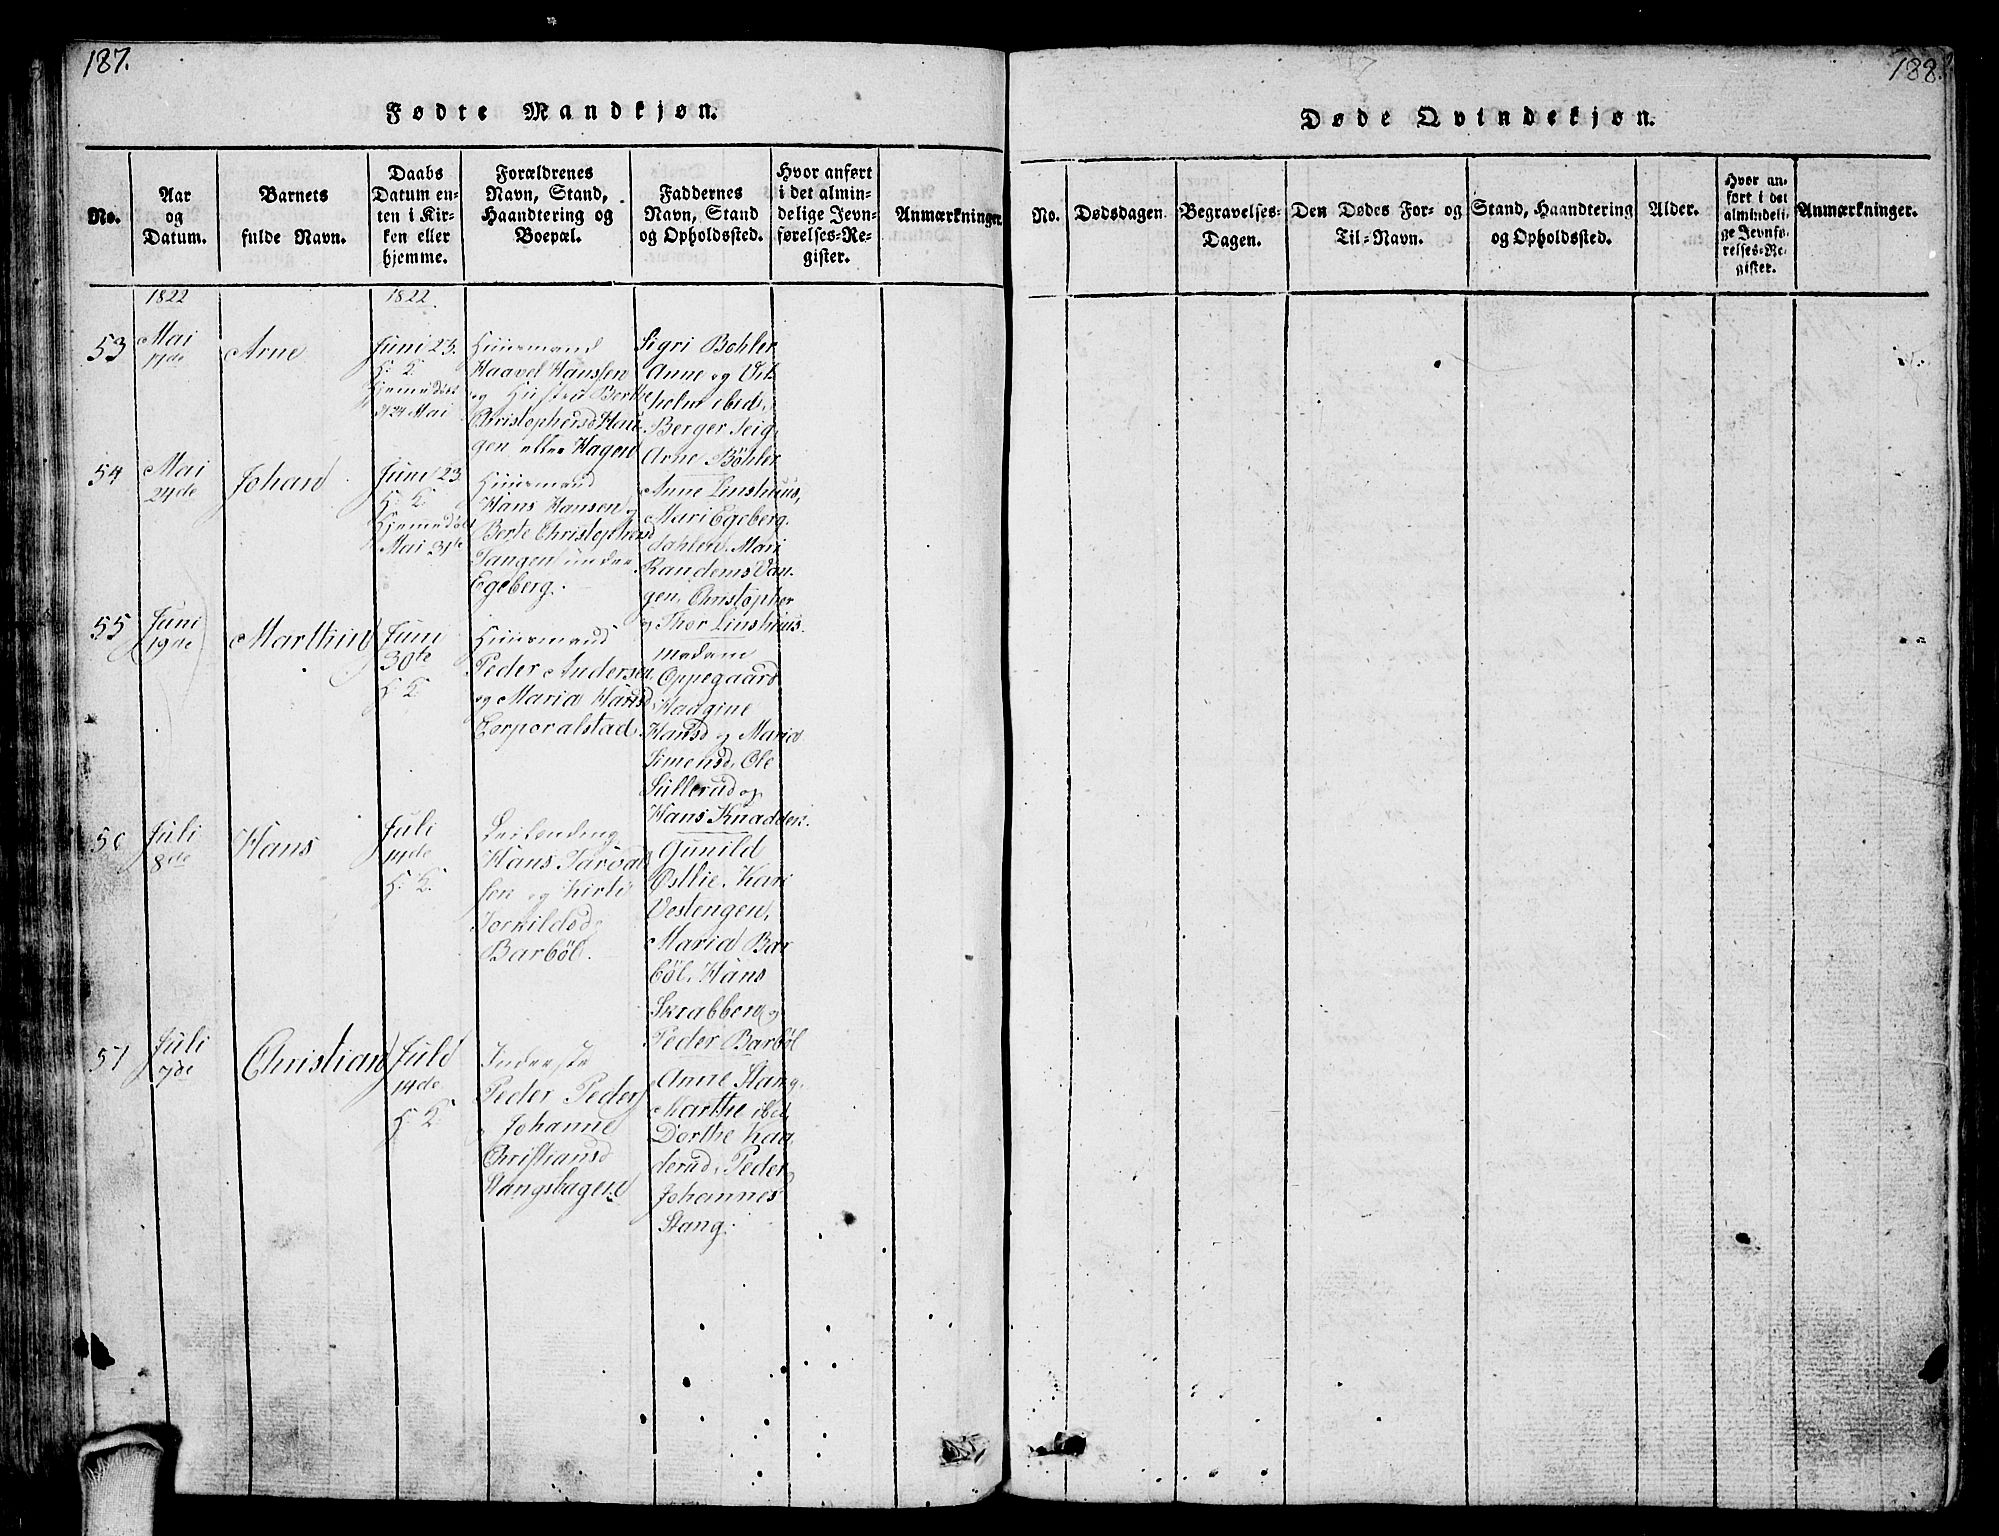 187.
Fødte Mandkjøn.
No.
Aar
og
Datum.
Barnets
fulde Navn.
Daabs
Datum en-
ten i Kir-
ken eller
hjemme.
Forældrenes
Navn, Stand,
Haandtering og
Boepæl.
Faddernes
Navn, Stand
og Opholdssted.
Hvor anført
i det almin-
delige Jevn-
førelses-Re-
gister.
Anmærkninger
1822
1822
53
Mai
17de
Arne
Juni 23.
H. K.
Hjemmedøbt
d 24 Mai
Huusmand
Haavel Hanssen
og Hustru Berthe
Christophersd Hau
gen eller Hagen
Sigri Bohler
Anne og Vil
holm ibid,
Berger Teig,
Arne Böhler
54
Mai
24de
Johan
Juni 23
H. K.
Hjemmedøbt
Mai 31te
Huusmand
Hans Hansen og
Berte Christophersd
Tangen under
Egeberg.
Anne Linshuus,
Mari Egeberg
dahlen, Mari
Randems Van-
gen, Christopher
og Thor Linshuus.
55
Juni
19de
Marthin
Juni
30te
H. K.
Huusmand
Peder Andersen
og Maria Hansd
Corporalstad
Madam
Oppegaard
Haagine
Hansd og Maria
Simensd, Ole
Sullerud og
Hans Knadden.
56
Juli
8de
Hans
Juli
14de
H. K.
Leilending
Hans Tarval
sen og Kirti
Torkildsd
Barböl.
Gunild
Østlie, Kari
Vestengen,
Maria Bar
böl, Hans
Skrabben og
Peder Barböl
57
Juli
7de
Christian
Juli
14de
H. K.
Inderste
Peder Peders
og Johanne
Christiansd
Stangshagen
Anne Stang,
Marthe ibid,
Dorthe Kaa
derud, Peder
Johannes
Stang.
188.
Døde Qvindekjøn.
No.
Dødsdagen.
Begravelses-
Dagen.
Den Dødes For- og
Til-Navn.
Stand, Haandtering
og Opholdssted.
Alder.
Hvor an-
ført i det
almindeli-
ge Jevnfø-
relses-Re-
gister.
Anmærkninger.